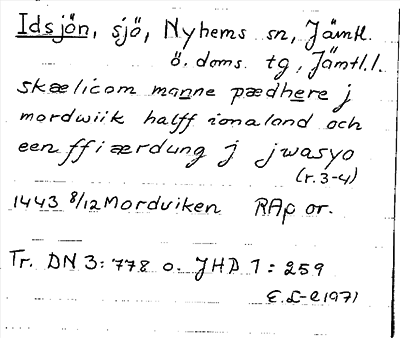 Idsjön, sjö, Nyhems sn, Jämtl.
ö. doms. tg, Jämtl.l.
skælicom manne pædhere j
mordwiik halff ionaland och
een ffiærdung j jwasyo
(r. 3-4)
1443 8/12 Mordviken RAp or.
Tr. DN 3: 778 o. JHD 1: 259
E. L-e 1971